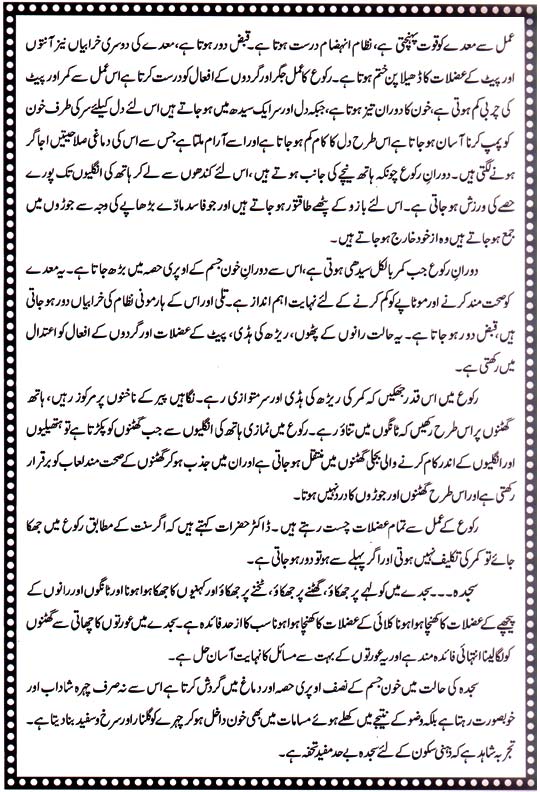 عمل سے معدے کو قوت پہنچتی ہے، نظام انہضام درست ہوتا ہے۔ قبض دور ہوتا ہے، معدے کی دوسری خرابیاں نیز آنتوں
اور پیٹ کے عضلات کا ڈھیلا پن ختم ہوتا ہے۔ رکوع کا عمل جگر اور گردوں کے افعال کو درست کرتا ہے اس عمل سے کمر اور پیٹ
کی چربی کم ہوتی ہے، خون کا دوران تیز ہوتا ہے، جبکہ دل اور سر ایک سیدھ میں ہو جاتے ہیں اس لئے دل کیلئے سر کی طرف خون
کو پمپ کرنا آسان ہو جاتا ہے اس طرح دل کا کام کم ہو جاتا ہے اور اسے آرام ملتا ہے جس سے اس کی دماغی صلاحیتیں اجاگر
ہونے لگتی ہیں۔ دورانِ رکوع چونکہ ہاتھ نیچے کی جانب ہوتے ہیں، اس لئے کندھوں سے لے کر ہاتھ کی انگلیوں تک پورے
حصے کی ورزش ہو جاتی ہے۔ اس لئے بازو کے پٹھے طاقتور ہو جاتے ہیں اور جو فاسد مادّے بڑھاپے کی وجہ سے جوڑوں میں
جمع ہو جاتے ہیں وہ از خود خارج ہو جاتے ہیں۔
دورانِ رکوع جب کمر بالکل سیدھی ہوتی ہے، اس سے دورانِ خون جسم کے اوپری حصہ میں بڑھ جاتا ہے۔ یہ معدے
کو صحت مند کرنے اور موٹاپے کو کم کرنے کے لئے نہایت اہم انداز ہے۔ تلی اور اس کے ہارمونی نظام کی خرابیاں دور ہو جاتی
ہیں، قبض دور ہو جاتا ہے۔ یہ حالت رانوں کے پٹھوں، ریڑھ کی ہڈی، پیٹ کے عضلات اور گردوں کے افعال کو اعتدال
میں رکھتی ہے۔
رکوع میں اس قدر جھکیں کہ کمر کی ریڑھ کی ہڈی اور سر متوازی رہے۔ نگاہیں پیر کے ناخنوں پر مرکوز رہیں، ہاتھ
گھٹنوں پر اس طرح رکھیں کہ ٹانگوں میں تناؤ رہے۔ رکوع میں نمازی ہاتھ کی انگلیوں سے جب گھٹنوں کو پکڑتا ہے تو ہتھیلیوں
اور انگلیوں کے اندر کام کرنے والی بجلی گھٹنوں میں منتقل ہو جاتی ہے اور ان میں جذب ہو کر گھٹنوں کے صحت مند لعاب کو برقرار
رکھتی ہے اور اس طرح گھٹنوں اور جوڑوں کا درد نہیں ہوتا۔
رکوع کے عمل سے تمام عضلات چست رہتے ہیں۔ ڈاکٹر حضرات کہتے ہیں کہ اگر سنت کے مطابق رکوع میں جھکا
جائے تو کمر کی تکلیف نہیں ہوتی اور اگر پہلے سے ہو تو دور ہو جاتی ہے۔
سجدہ۔۔۔ سجدے میں کولہے پر جھکاؤ، گھٹنے پر جھکاؤ، ٹخنے پر جھکاؤ اور کہنیوں کا جھکا ہوا ہونا اور ٹانگوں اور رانوں کے
پیچھے کے عضلات کا کھنچا ہوا ہونا کلائی کے عضلات کا کھنچا ہوا ہونا سب کا از حد فائدہ ہے۔ سجدے میں عورتوں کا چھاتی سے گھٹنوں
کو لگا لینا انتہائی فائدہ مند ہے اور یہ عورتوں کے بہت سے مسائل کا نہایت آسان حل ہے۔
سجدہ کی حالت میں خون جسم کے نصف اوپری حصہ اور دماغ میں گردش کرتا ہے اس سے نہ صرف چہرہ شاداب اور
خوبصورت رہتا ہے بلکہ وضو کے نتیجے میں کھلے ہوئے مسامات میں بھی خون داخل ہو کر چہرے کو گلنار اور سرخ و سفید بنا دیتا ہے۔
تجربہ شاہد ہے کہ ذہنی سکون کے لئے سجدہ بے حد مفید تحفہ ہے۔